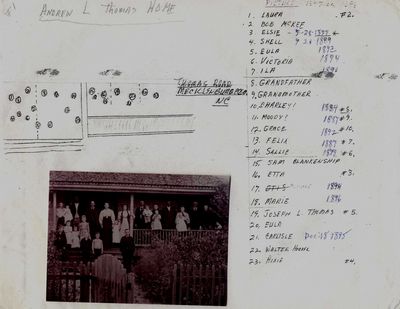 ANDREW L THOMAS HOME
THOMAS ROAD
MECKLENBURG CO.
NC
1. LAURA #2.
2. BOB MCKEE
3. ELSIE - 9-26
4. SHELL 9 26 1889
5. EULA 1892
6. VICTORIA 1894
7. ILA
8. GRANDFATHER
9. GRANDMOTHER
10. CHARLEY! 1884 #8.
11. MOODY! 1887 #9.
12. GRACE 1892 #10.
13. FELIX 1887 #7.
14. SALLIE 1878 #6.
15. SAM BLANKENSHIP
16. ETTA #3.
17. OTIS 1894
18. MARIE 1896
19. JOSEPH L THOMAS #5.
20. EULA
21. CARLISLE Dec 18 1895
22. WALTER
23. #4.